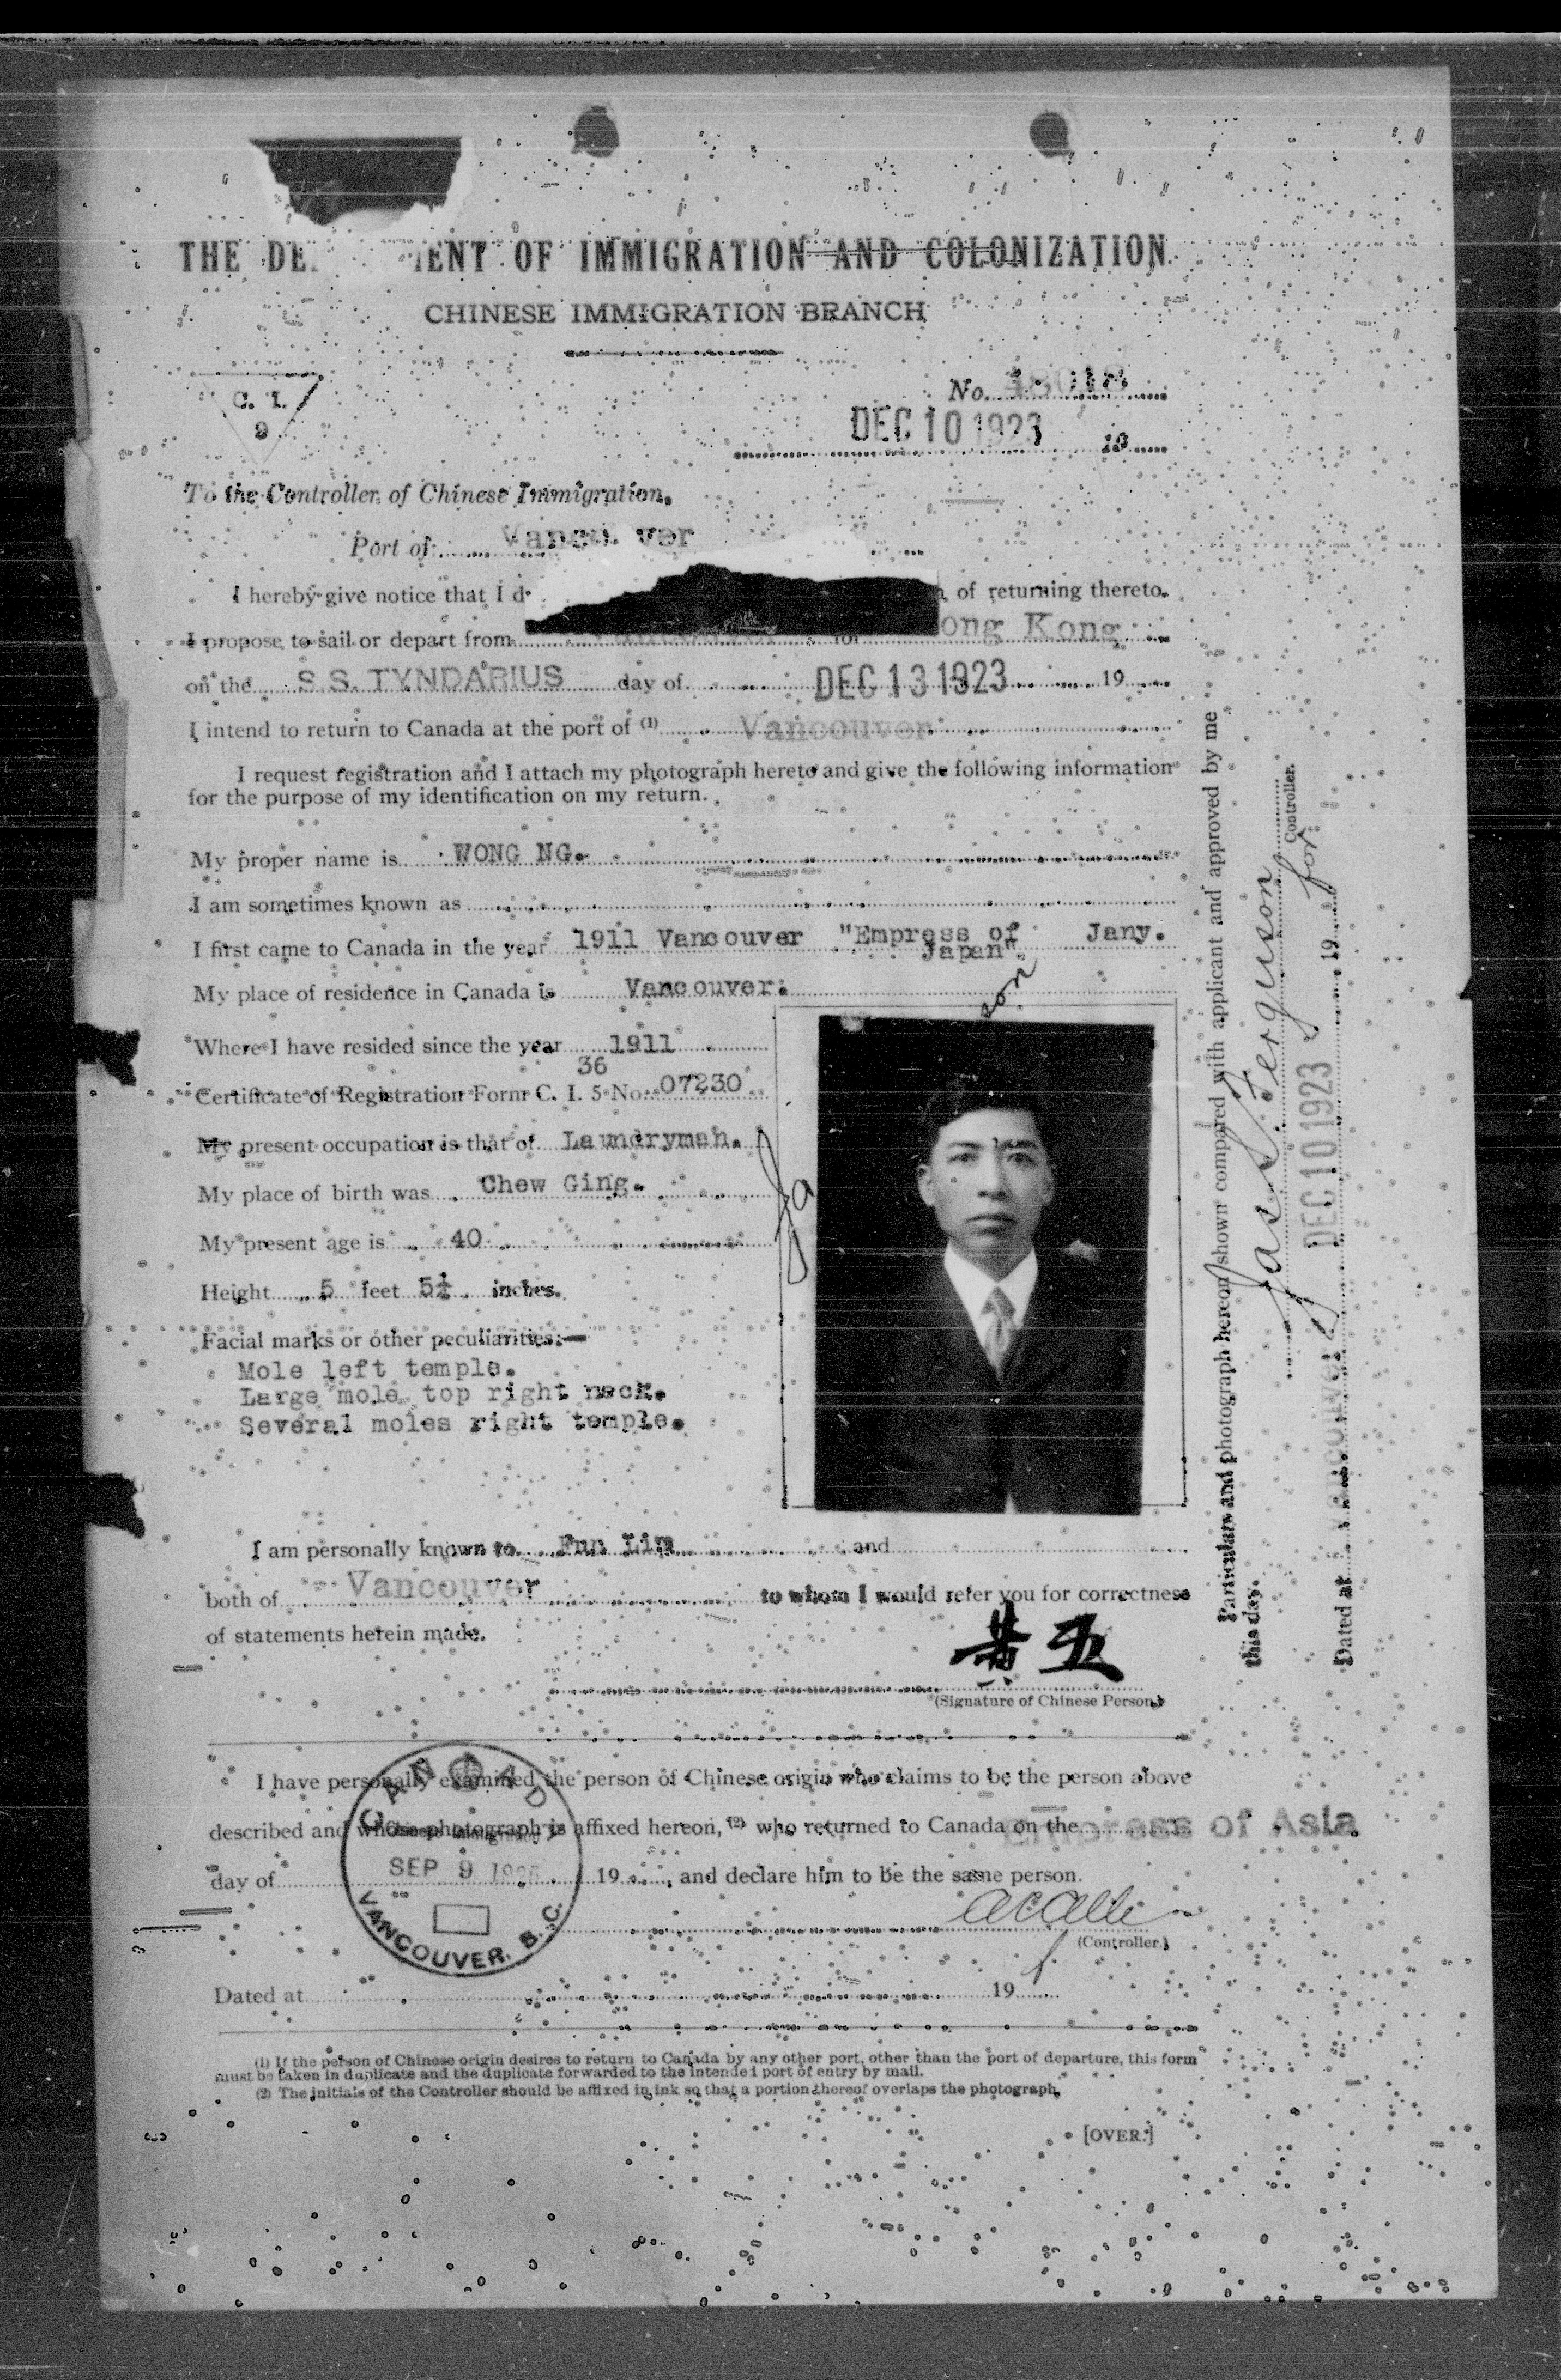 THE DE ENT OF IMMIGRATION AND COLONIZATION
CHINESE IMMIGRATION BRANCH
C. I.
9
No. 48018
DEC 10 1923 19
To the Controller of Chinese Immigration,
Port of Vanco ver
I hereby give notice that I d of returning thereto.
I propose to sail or depart from for ong Kong
on the S.S. TYNDARIUS day of DEC 13 1923 19
I intend to return to Canada at the port of (1) Vancouver
I request registration and I attach my photograph hereto and give the following information
for the purpose of my identification on my return.
My proper name is WONG NG.
I am sometimes known as
I first came to Canada in the year 1911 Vancouver "Empress of Japan" Jany.
My place of residence in Canada is Vancouver.
Where I have resided since the year 1911
36
Certificate of Registration Form C. I. 5 No. 07230
My present occupation is that of Laundryman.
My place of birth was Chew Ging.
My present age is 40
Height 5 feet 5½ inches.
Facial marks or other peculiarities:—
Mole left temple.
Large mole top right neck.
Several moles right temple.
I am personally known to Fun Lim and
both of Vancouver to whom I would refer you for correctness
of statements herein made.
黄五
(Signature of Chinese Person.)
I have personally examined the person of Chinese origin who claims to be the person above
described and whose photograph is affixed hereon, (2) who returned to Canada on the Empress of Asia
day of 19 , and declare him to be the same person.
CANADA
Chinese Immigration
SEP 9 1925
VANCOUVER, B.C.
(Controller.)
Dated at 19
(1) If the person of Chinese origin desires to return to Canada by any other port, other than the port of departure, this form
must be taken in duplicate and the duplicate forwarded to the intended port of entry by mail.
(2) The initials of the Controller should be affixed in ink so that a portion thereof overlaps the photograph.
[OVER.]
Particulars and photograph hereon shown compared with applicant and approved by me
this day.
Jas S. Ferguson
for Controller.
Dated at Vancouver DEC 10 1923 19